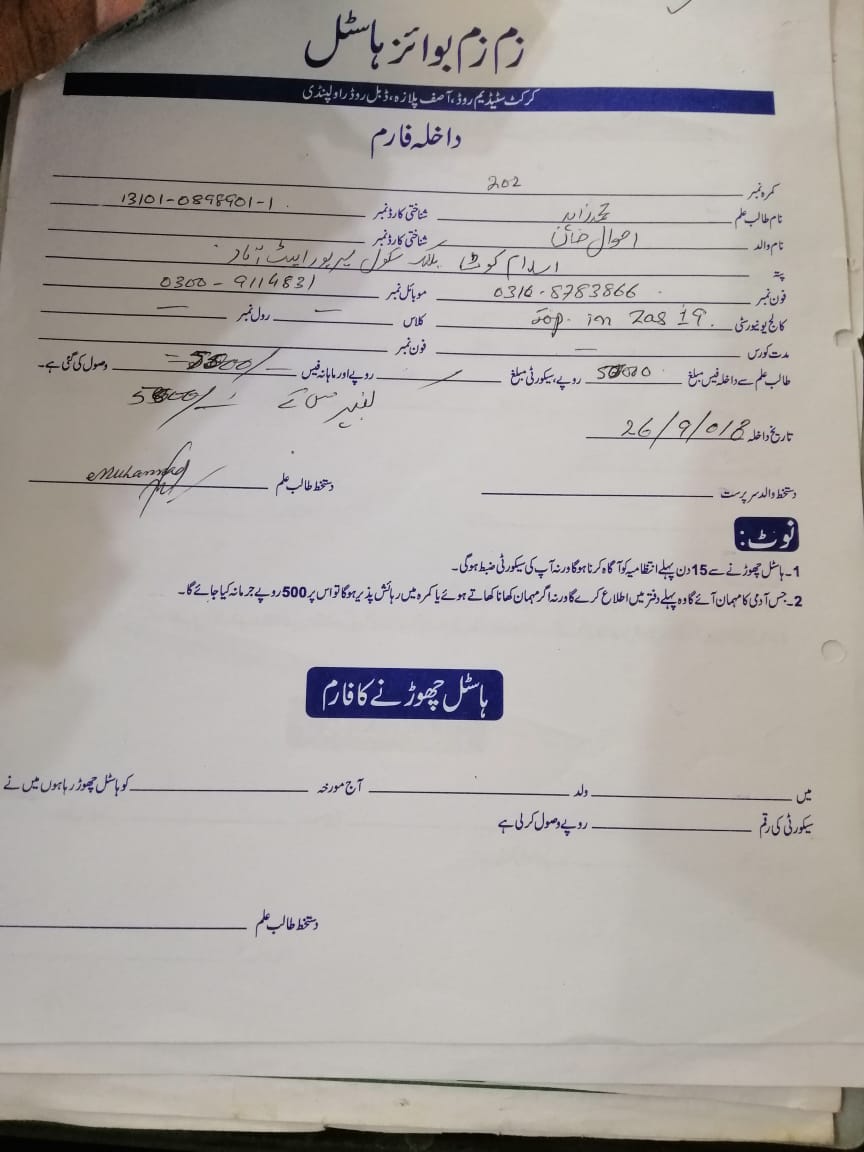 زم زم بوائز ہاسٹل
کرکٹ سٹیڈیم روڈ، آصف پلازہ، ڈبل روڈ راولپنڈی
داخلہ فارم
کمرہ نمبر 202
نام طالب علم محمد زاہد شناختی کارڈ نمبر 13101-0898901-1
نام والد خان شناختی کارڈ نمبر
پتہ سکول میرپور ایبٹ آباد
فون نمبر 0310-8783866 موبائل نمبر 0300-9114831
کالج یونیورسٹی Job. in Zas 19. کلاس — رول نمبر —
مدت کورس — فون نمبر
طالب علم سے داخلہ فیس مبلغ روپے، سیکورٹی مبلغ روپے اور ماہانہ فیس وصول کی گئی ہے۔
بغیر میس کے
تاریخ داخلہ 26/9/018
دستخط والد سرپرست دستخط طالب علم Muhammad
نوٹ:
1۔ ہاسٹل چھوڑنے سے 15 دن پہلے انتظامیہ کو آگاہ کرنا ہوگا ورنہ آپ کی سیکورٹی ضبط ہوگی۔
2۔ جس آدمی کا مہمان آئے گا وہ پہلے دفتر میں اطلاع کرے گا ورنہ اگر مہمان کھانا کھاتے ہوئے یا کمرہ میں رہائش پذیر ہوگا تو اس پر 500 روپے جرمانہ کیا جائے گا۔
ہاسٹل چھوڑنے کا فارم
میں ولد آج مورخہ کو ہاسٹل چھوڑ رہا ہوں میں نے
سیکورٹی کی رقم روپے وصول کر لی ہے
دستخط طالب علم